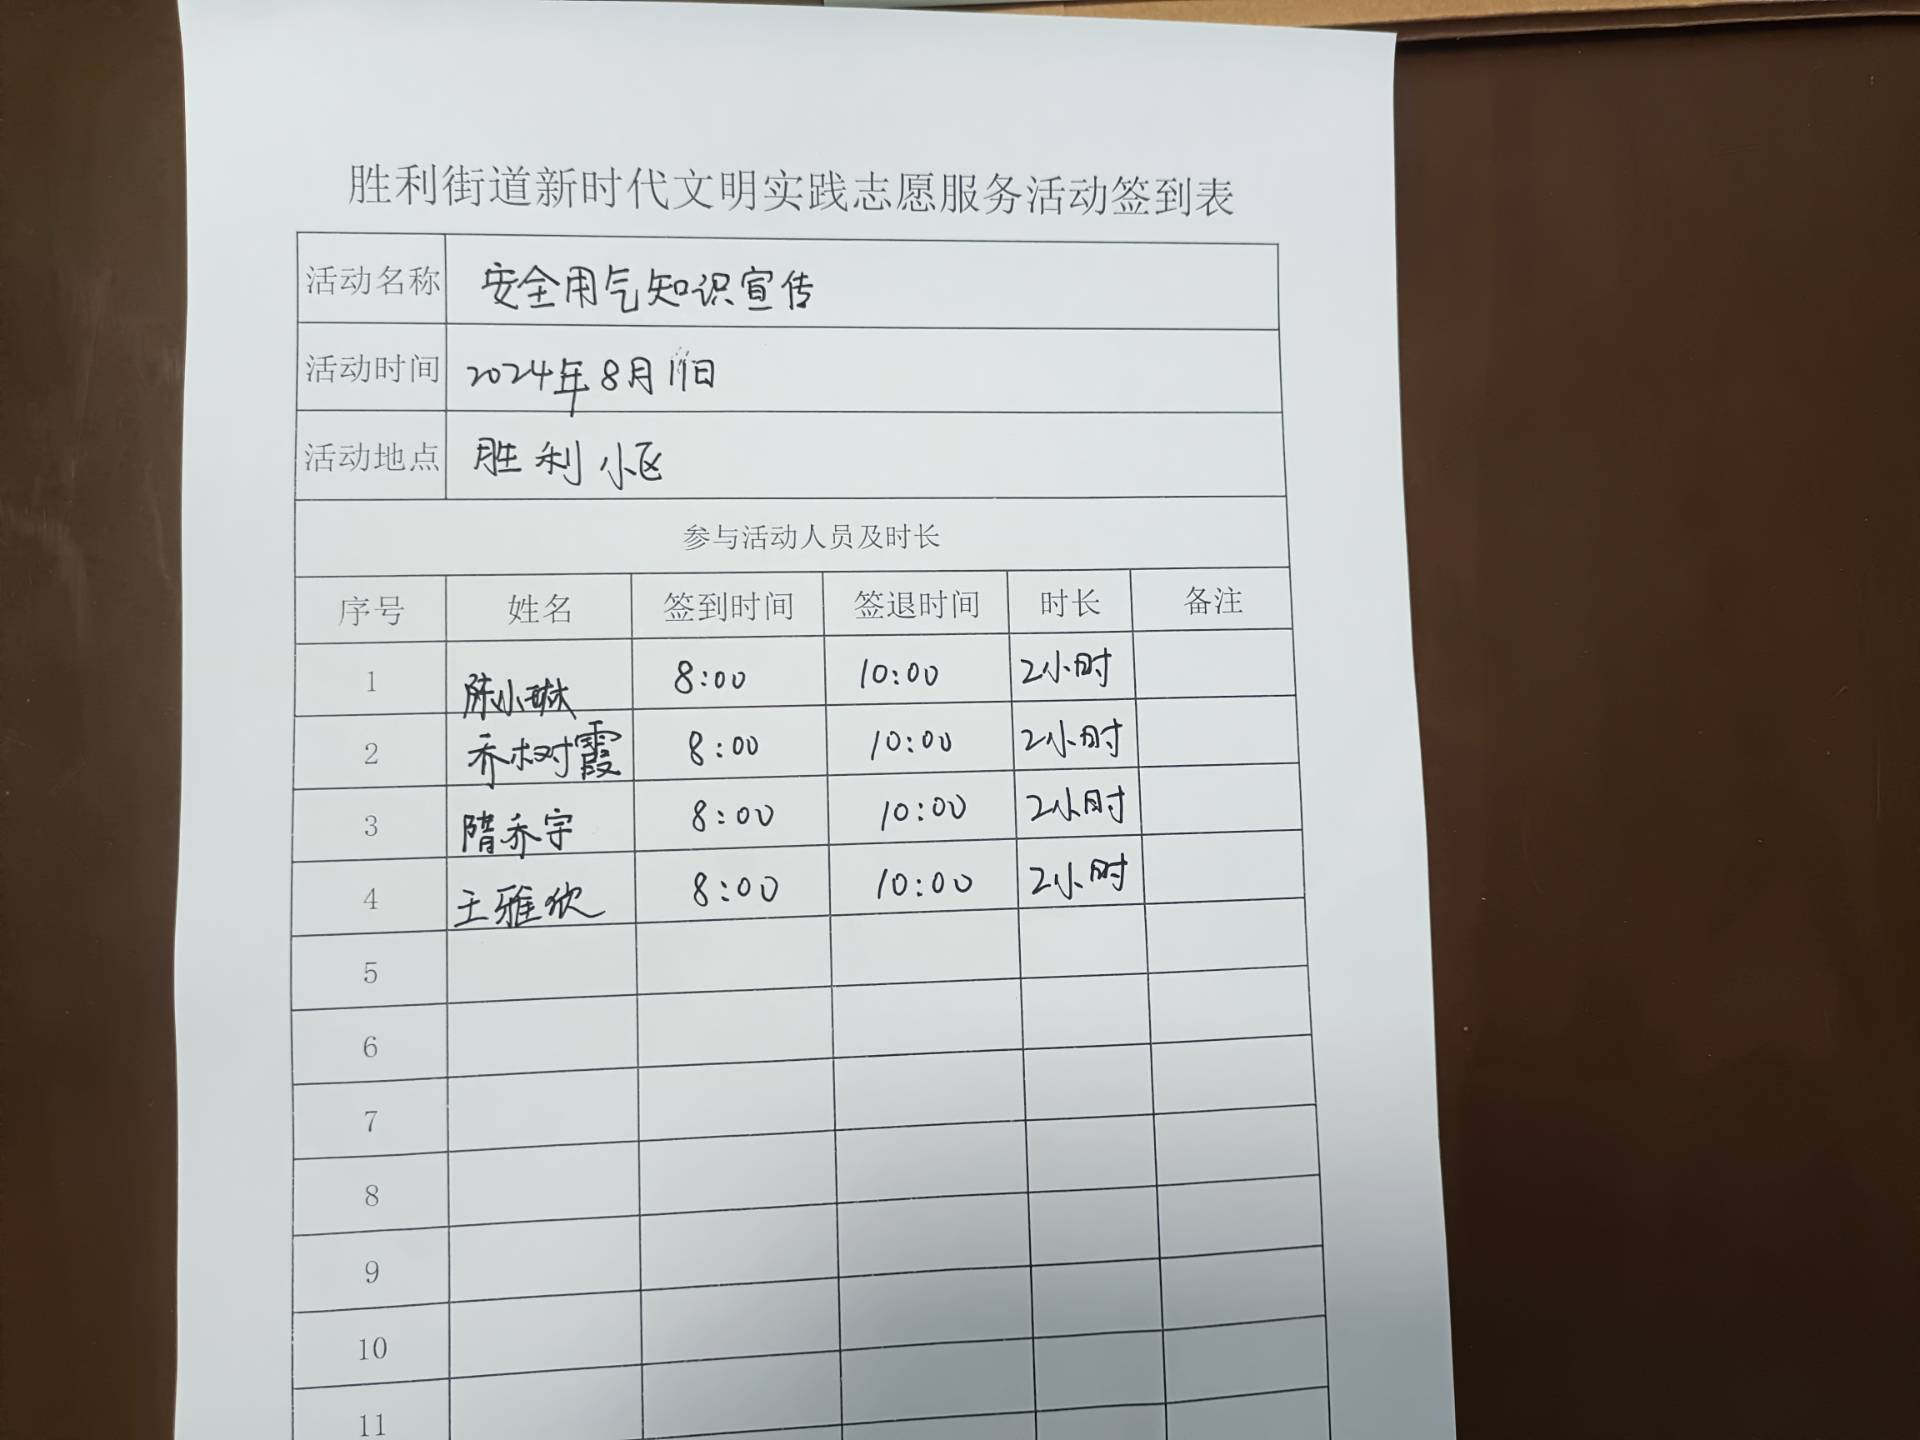 胜利街道新时代文明实践志愿服务活动签到表
活动名称 安全用气知识宣传
活动时间 2024年8月11日
活动地点 胜利小区
参与活动人员及时长
序号 姓名 签到时间 签退时间 时长 备注
1 陈小琳 8:00 10:00 2小时
2 乔树霞 8:00 10:00 2小时
3 隋乔宇 8:00 10:00 2小时
4 王雅欣 8:00 10:00 2小时
5
6
7
8
9
10
11